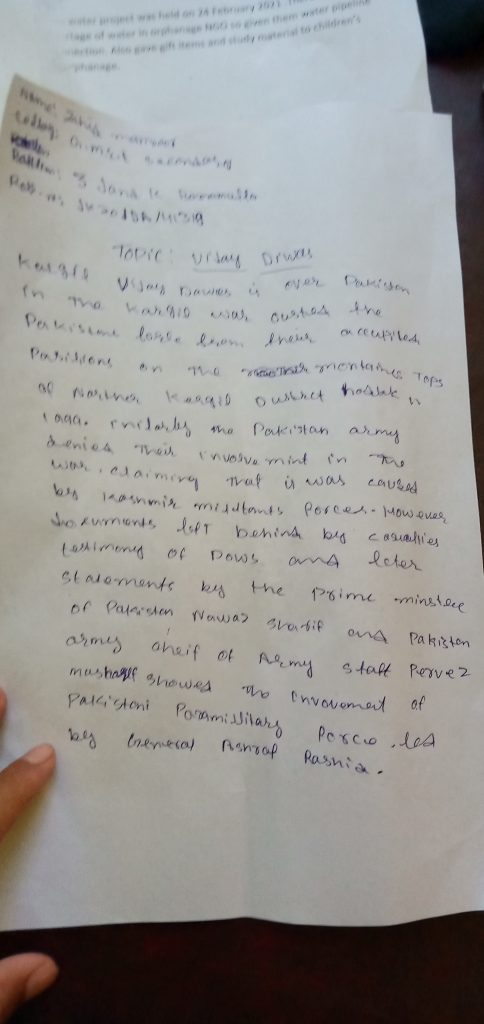 water project was held on 24 February 2021.
tage of water in orphanage NGO so given them water pipeline
nection. Also gave gift items and study material to children's
phanage.
Name: Zahid
College: secondary
Battlion: 3 Jand k Baramulla
Topic: Vijay Diwas
Kargil Vijay Dawes is over Pakistan
in the Kargil war ousted the
Pakistani forse from their occupited
Positions on the montaines Tops
of Northen Kargil Dustrict in
1999. initarly the Pakistan army
denies their involvemint in the
war, claiming that is was caused
by Kashmir militants forces. However
documents left behind by casualties
testimony of Pows and leter
statements by the Prime minstere
of Pakistan Nawaz Sharif and Pakistan
army cheif of Army staff Pervez
musharff showed the involvement of
Pakistani Paramillitary force, led
by General Ashraf Rashid.